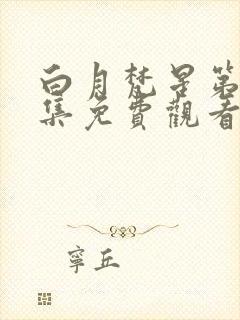 白月梵星第
集免費觀看
寧丘